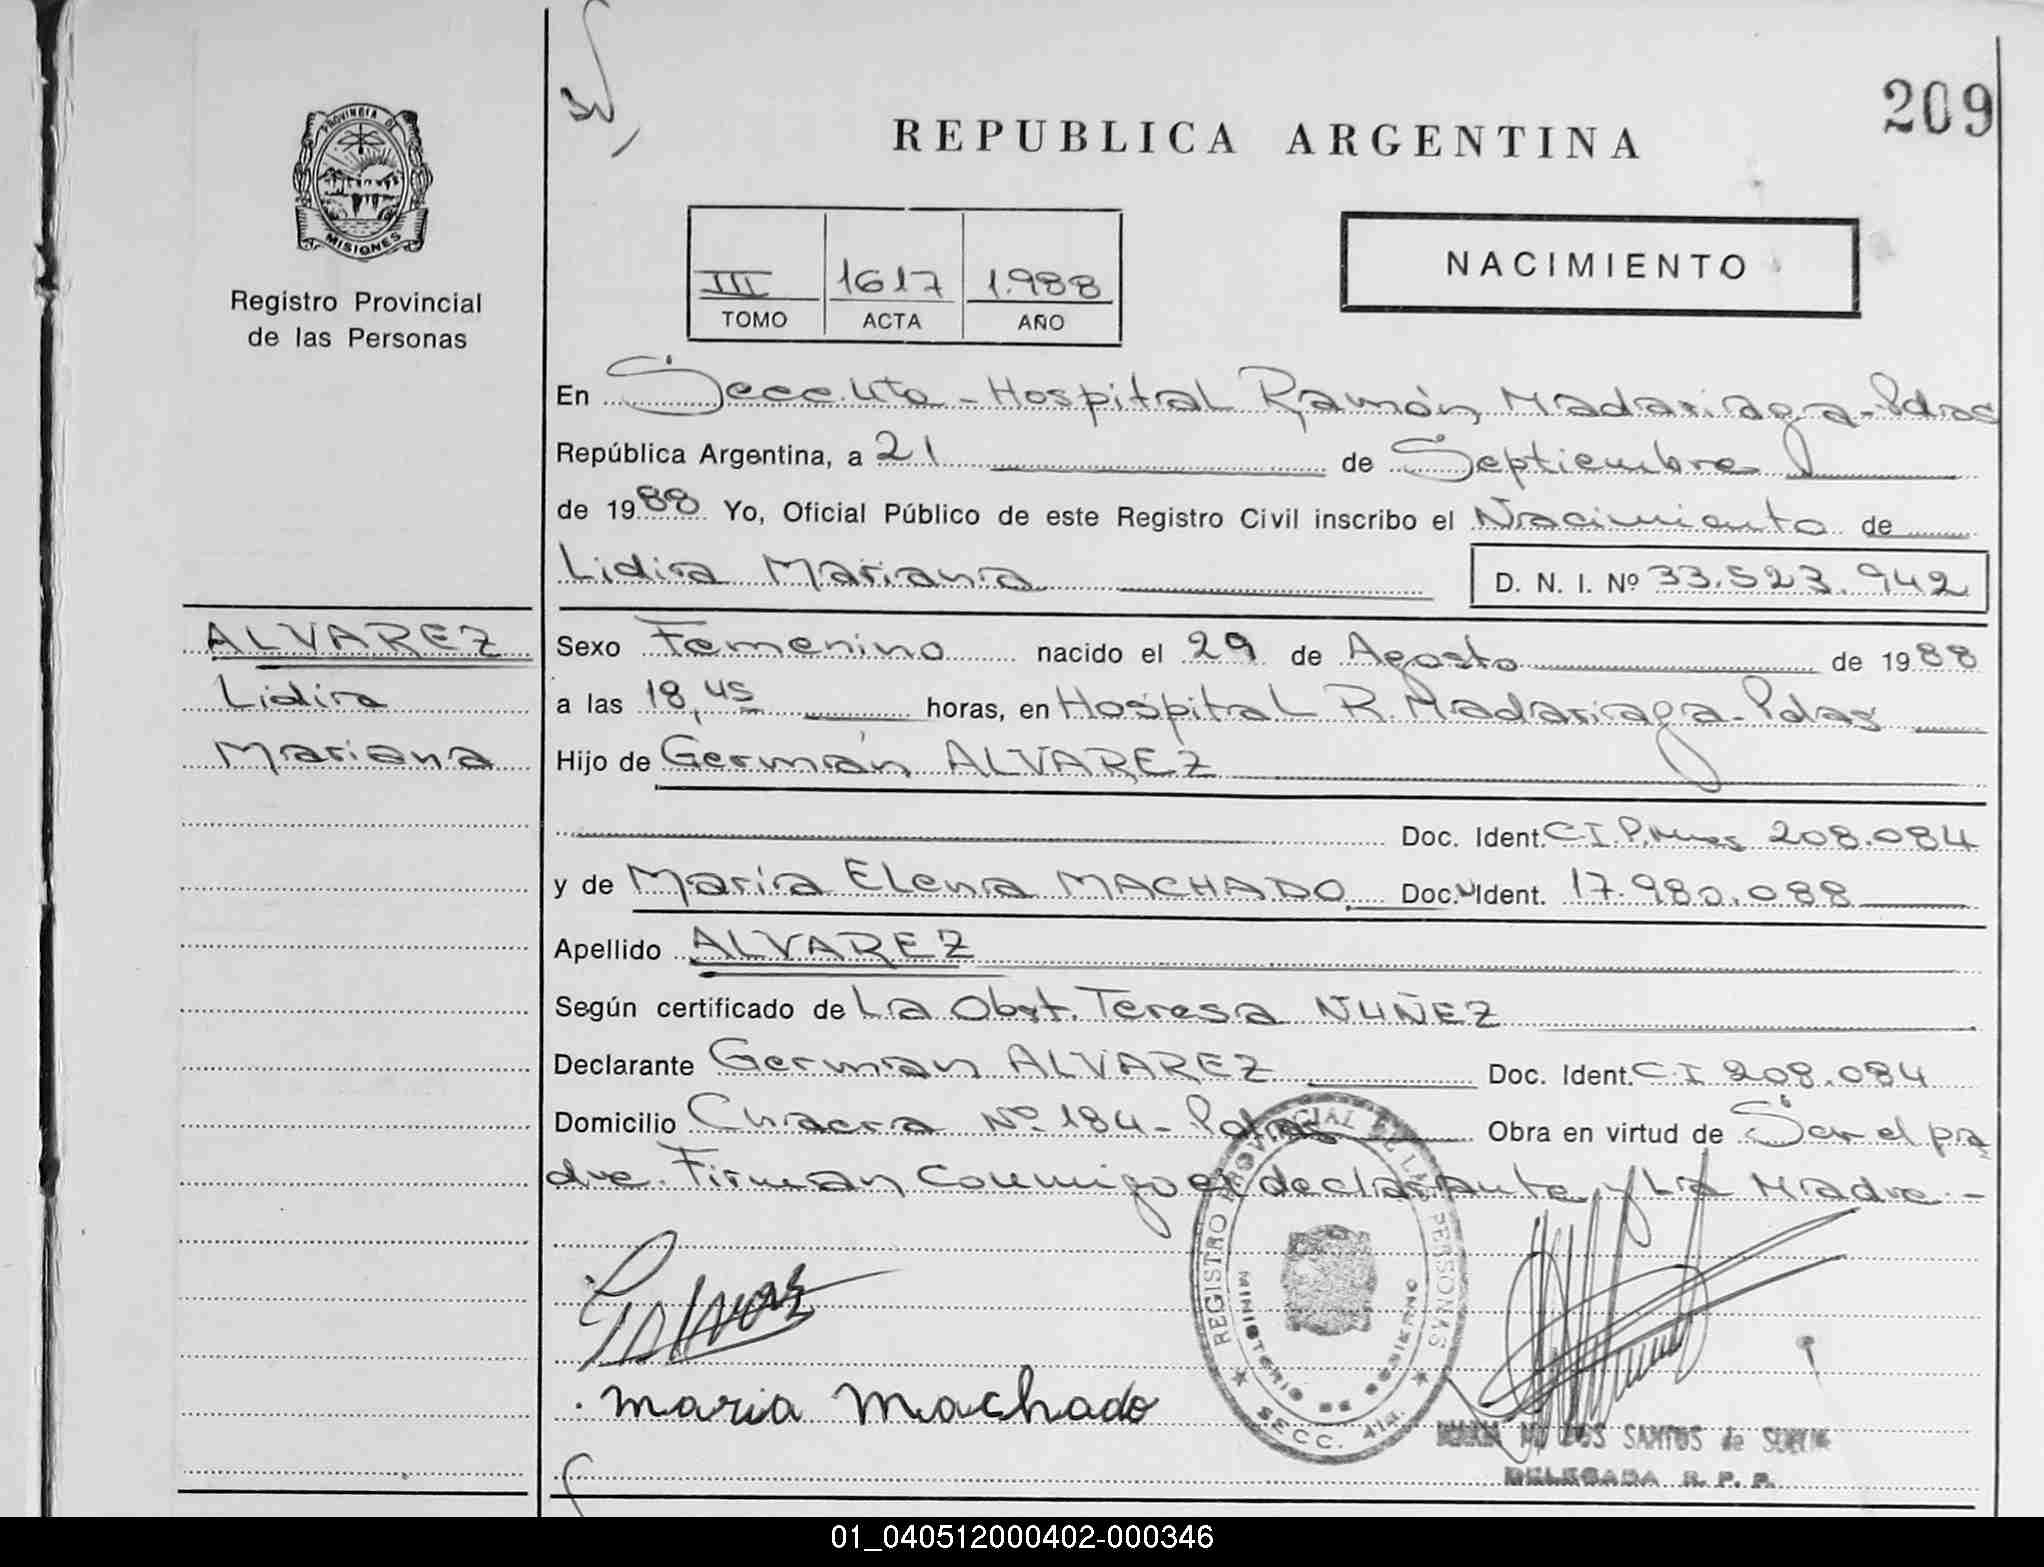 209
REPUBLICA ARGENTINA
PROVINCIA DE
MISIONES
Registro Provincial
de las Personas
NACIMIENTO
III 1617 1.988
TOMO ACTA AÑO
En Secc. 4ta - Hospital Ramón Madariaga - Pdas
República Argentina, a 21 de Septiembre
de 1988 Yo, Oficial Público de este Registro Civil inscribo el Nacimiento de
Lidira Mariana D. N. I. Nº 33.523.942
ALVAREZ
Lidira
Mariana
Sexo Femenino nacido el 29 de Agosto de 1988
a las 18,45 horas, en Hospital R. Madariaga - Pdas
Hijo de Germán ALVAREZ
Doc. Ident. C.I.P.Mnes 208.084
y de María Elena MACHADO Doc. Ident. 17.980.088
Apellido ALVAREZ
Según certificado de La Obst. Teresa NUÑEZ
Declarante German ALVAREZ Doc. Ident. C.I 208.084
Domicilio Chacra Nº 184 - Pdas Obra en virtud de Ser el pa
dre. Firman conmigo el declarante y La Madre -
REGISTRO PROVINCIAL DE LAS PERSONAS
MINISTERIO DE GOBIERNO
SECC. 4ta.
maria machado
DOS SANTOS de
DELEGADA R. P. P.
01_040512000402-000346